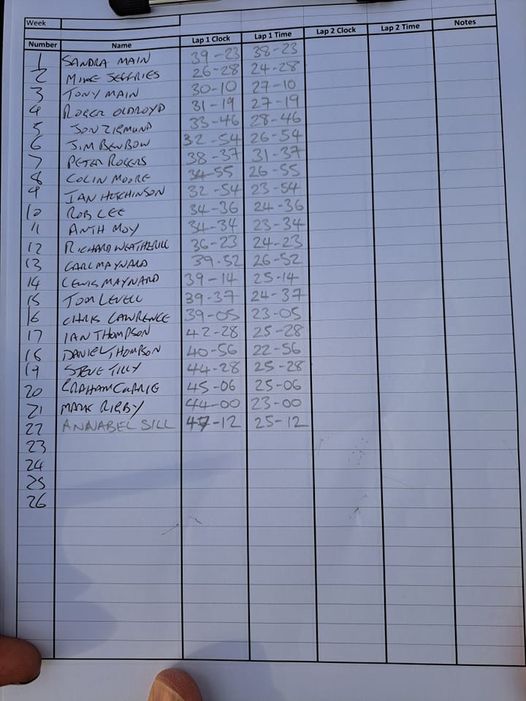 Week
Number Name Lap 1 Clock Lap 1 Time Lap 2 Clock Lap 2 Time Notes
1 SANDRA MAIN 39-23 38-23
2 MIKE JEFFRIES 26-28 24-28
3 TONY MAIN 30-10 27-10
4 ROGER OLDROYD 31-19 27-19
5 JON ZIGMUND 33-46 28-46
6 JIM BENBOW 32-54 26-54
7 PETER ROGERS 38-37 31-37
8 COLIN MOORE 34-55 26-55
9 IAN HUTCHINSON 32-54 23-54
10 ROB LEE 34-36 24-36
11 ANTH MOY 34-34 23-34
12 RICHARD WEATHERILL 36-23 24-23
13 CARL MAYNARD 39.52 26-52
14 LEWIS MAYNARD 39-14 25-14
15 TOM LEVELL 39-37 24-37
16 CHRIS LAWRENCE 39-05 23-05
17 IAN THOMPSON 42-28 25-28
18 DANIEL THOMPSON 40-56 22-56
19 STEVE TILLY 44-28 25-28
20 GRAHAM CURRIE 45-06 25-06
21 MARK RIGBY 44-00 23-00
22 ANNABEL SILL 47-12 25-12
23
24
25
26